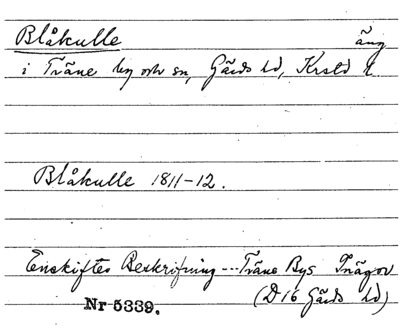 Blåkulle äng
i Träne by och sn, Gärds hd, Krstd l.
Blåkulle 1811-12.
Enskiftes Beskrifning --- Träne Bys Inägor
(D16 Gärds hd)
Nr 5339.